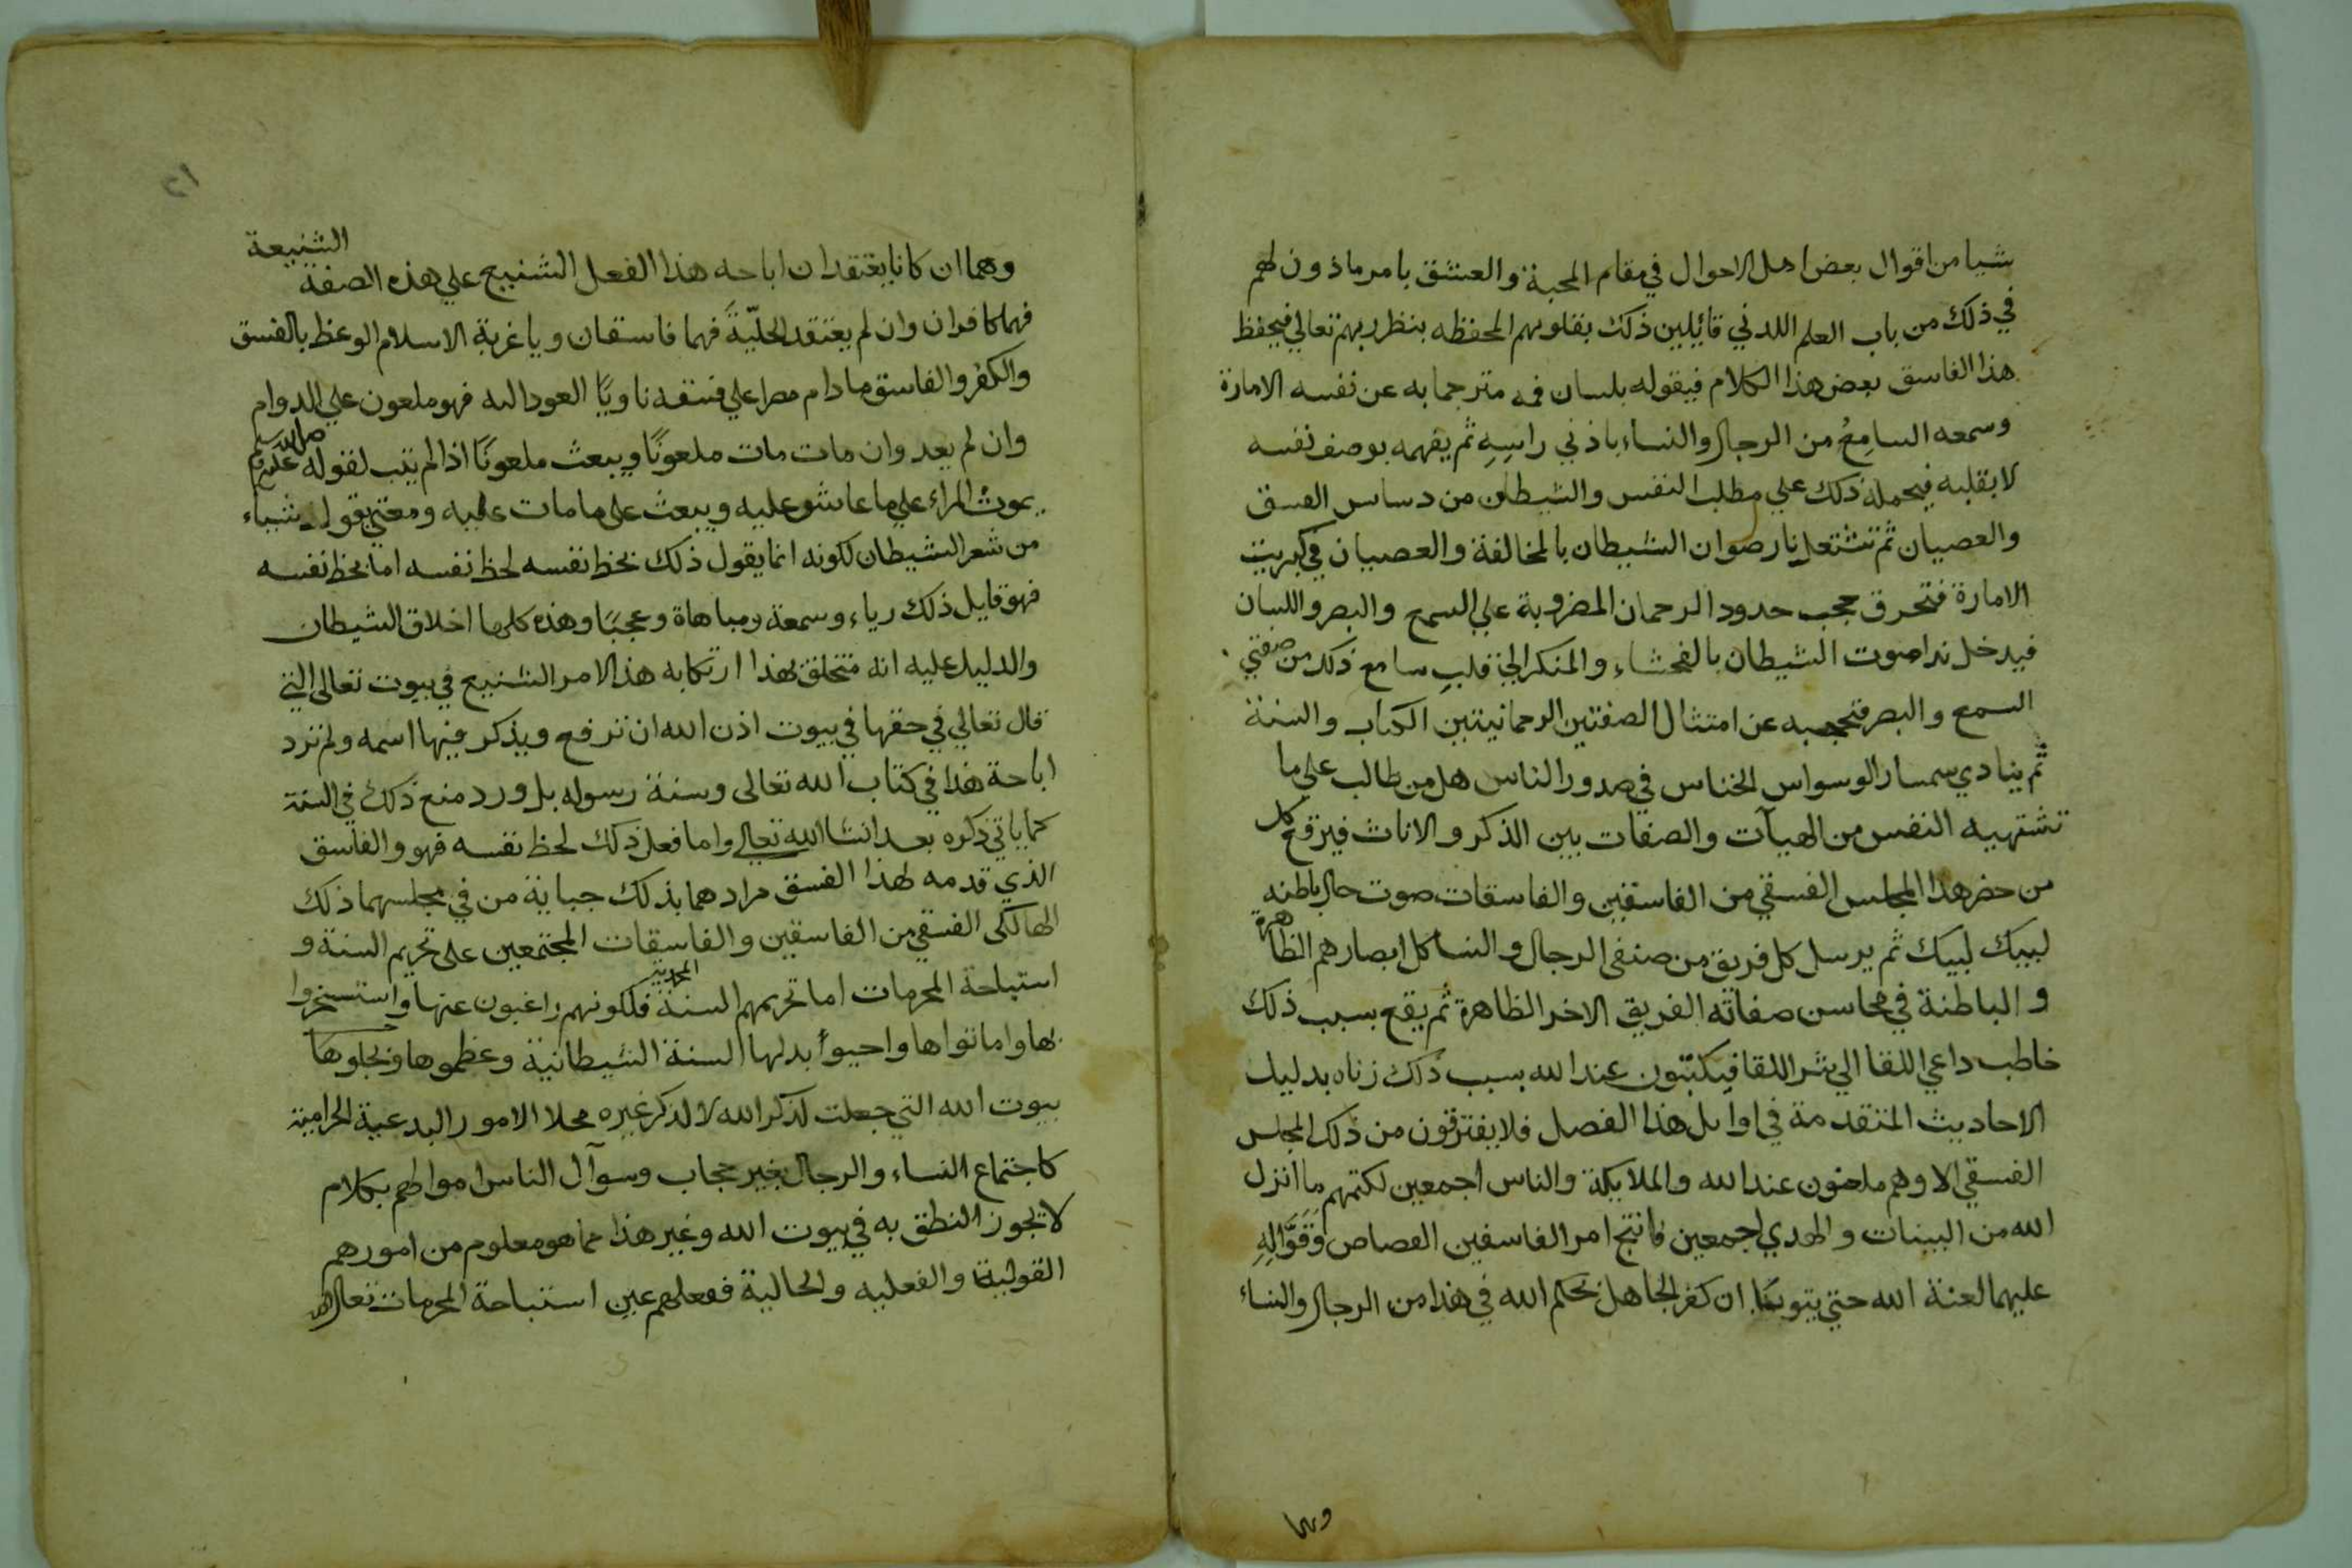 شيا من اقوال بعض اهل الاحوال في مقام المحبة والعشق بامر ماذون لهم
في ذلك من باب العلم اللدني قايلين ذلك بقلوبهم المحفظه بنظر ربهم تعالي فيحفظ
هذا الفاسق بعض هذا الكلام فيقوله بلسان فمه مترجما به عن نفسه الامارة
وسمعه السامِعُ من الرجال والنساء باذني راسِهِ ثم يفهمه بوصف نفسه
لا بقلبه فيحمله ذلك علي مطلب النفس والشيطان من دساس الفسق
والعصيان ثم تشتعل نار صوان الشيطان بالمخالفة والعصيان في كبريت
الامارة فتحرق حجب حدود الرحمان المضروبة علي السمع والبصر واللسان
فيدخل ندا صوت الشيطان بالفحشاء والمنكر الي قلبِ سامع ذلك من صفتي
السمع والبصر فتحجبه عن امتثال الصفتين الرحمانيتين الكتاب والسنة
ثم ينادي سمسار الوسواس الخناس في صدور الناس هل من طالب علي ما
تشتهيه النفس من الهيآت والصفات بين الذكر والاناث فيرفع كل
من حضر هذا المجلس الفسقي من الفاسقين والفاسقات صوت حال باطنه
لبيك لبيك ثم يرسل كل فريق من صنفي الرجال والنسا كل ابصارهم الظاهرة
والباطنة في محاسن صفاته الفريق الاخر الظاهرة ثم يقع بسبب ذلك
خاطب داعي اللقا الي شر اللقا فيكتبون عند الله بسبب ذلك زناه بدليل
الاحاديث المتقدمة في اوايل هذا الفصل فلا يفترقون من ذلك المجلس
الفسقي الا وهم ملعنون عند الله والملايكة والناس اجمعين لكتمهم ما انزل
الله من البينات والهدي اجمعين فانتج امر الفاسقين القصاص وَقَوَّالِهِ
عليهما لعنة الله حتي يتوبا ان كفر الجاهل بحكم الله في هذا من الرجال والنساء
وهما
٢١
وهما ان كانا يعتقدان اباحه هذا الفعل الشنيع علي هذه الصفة الشنيعة
فهما كافران وان لم يعتقد الحلّيّةَ فهما فاسقان ويا غربة الاسلام الوعظ بالفسق
والكفر والفاسق مادام مصرا علي فسقه ناويًا العود اليه فهو ملعون علي الدوام
وان لم يعد وان مات مات ملعونًا ويبعث ملعونًا اذا لم يتب لقوله صلي الله عليه وسلم
يموت المراء علي ما عاش عليه ويبعث علي ما مات عليه ومعني يقول شياء
من شعر الشيطان لكونه انما يقول ذلك بحظ نفسه لحظ نفسه اما بحظ نفسه
فهو قايل ذلك رياء وسمعة ومباهاة وعجبًا وهذه كلها اخلاق الشيطان
والدليل عليه انه متخلق بهذا ارتكابه هذا الامر الشنيع في بيوت تعالي التي
قال تعالي في حقها في بيوت اذن الله ان ترفع ويذكر فيها اسمه ولم ترد
اباحة هذا في كتاب الله تعالي وسنة رسوله بل ورد منع ذلك في السنة
كما ياتي ذكره بعد انشا الله تعالي واما فعل ذلك لحظ نفسه فهو والفاسق
الذي قدمه لهذا الفسق مرادهما بذلك جباية من في مجلسهما ذلك
الهالكي الفسقي من الفاسقين والفاسقات المجتمعين علي تحريم السنة و
استباحة المحرمات اما تحريمهم السنة المحمدية فلكونهم راغبون عنها واستسخروا
بها واماتواها واحيواْ بدلها السنة الشيطانية وعظموها وبجلوها
بيوت الله التي جعلت لذكر الله لا لذكر غيره محلا الامور البدعية الحرامية
كاجتماع النساء والرجال بغير حجاب وسوآل الناس اموالهم بكلام
لا يجوز النطق به في بيوت الله وغير هذا مما هو معلوم من امورهم
القولية والفعليه والحالية ففعلهم عين استباحة المحرمات تعالي الله